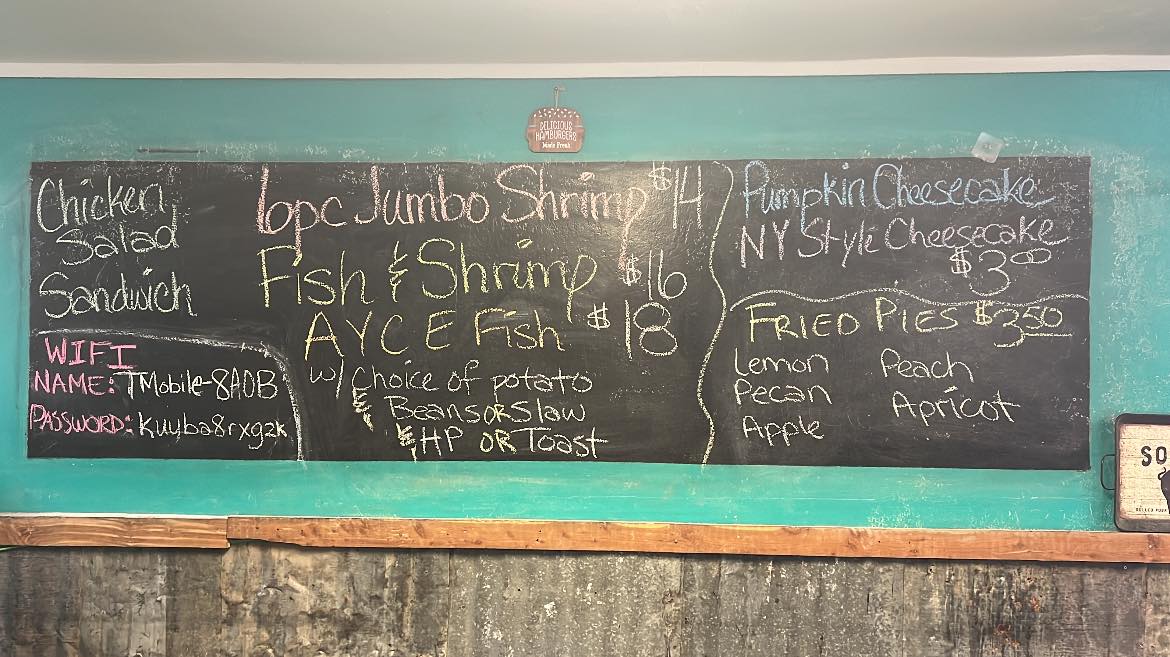 DELICIOUS
HAMBURGERS
Made Fresh
Chicken
Salad
Sandwich
WIFI
NAME: TMobile-8A0B
PASSWORD: kuuba8rxgzk
6pc Jumbo Shrimp $14
Fish & Shrimp $16
AYCE Fish $18
w/ Choice of potato
& Beans OR Slaw
& HP OR Toast
Pumpkin Cheesecake
NY Style Cheesecake
$3.00
FRIED PIES $3.50
Lemon Peach
Pecan Apricot
Apple
SO